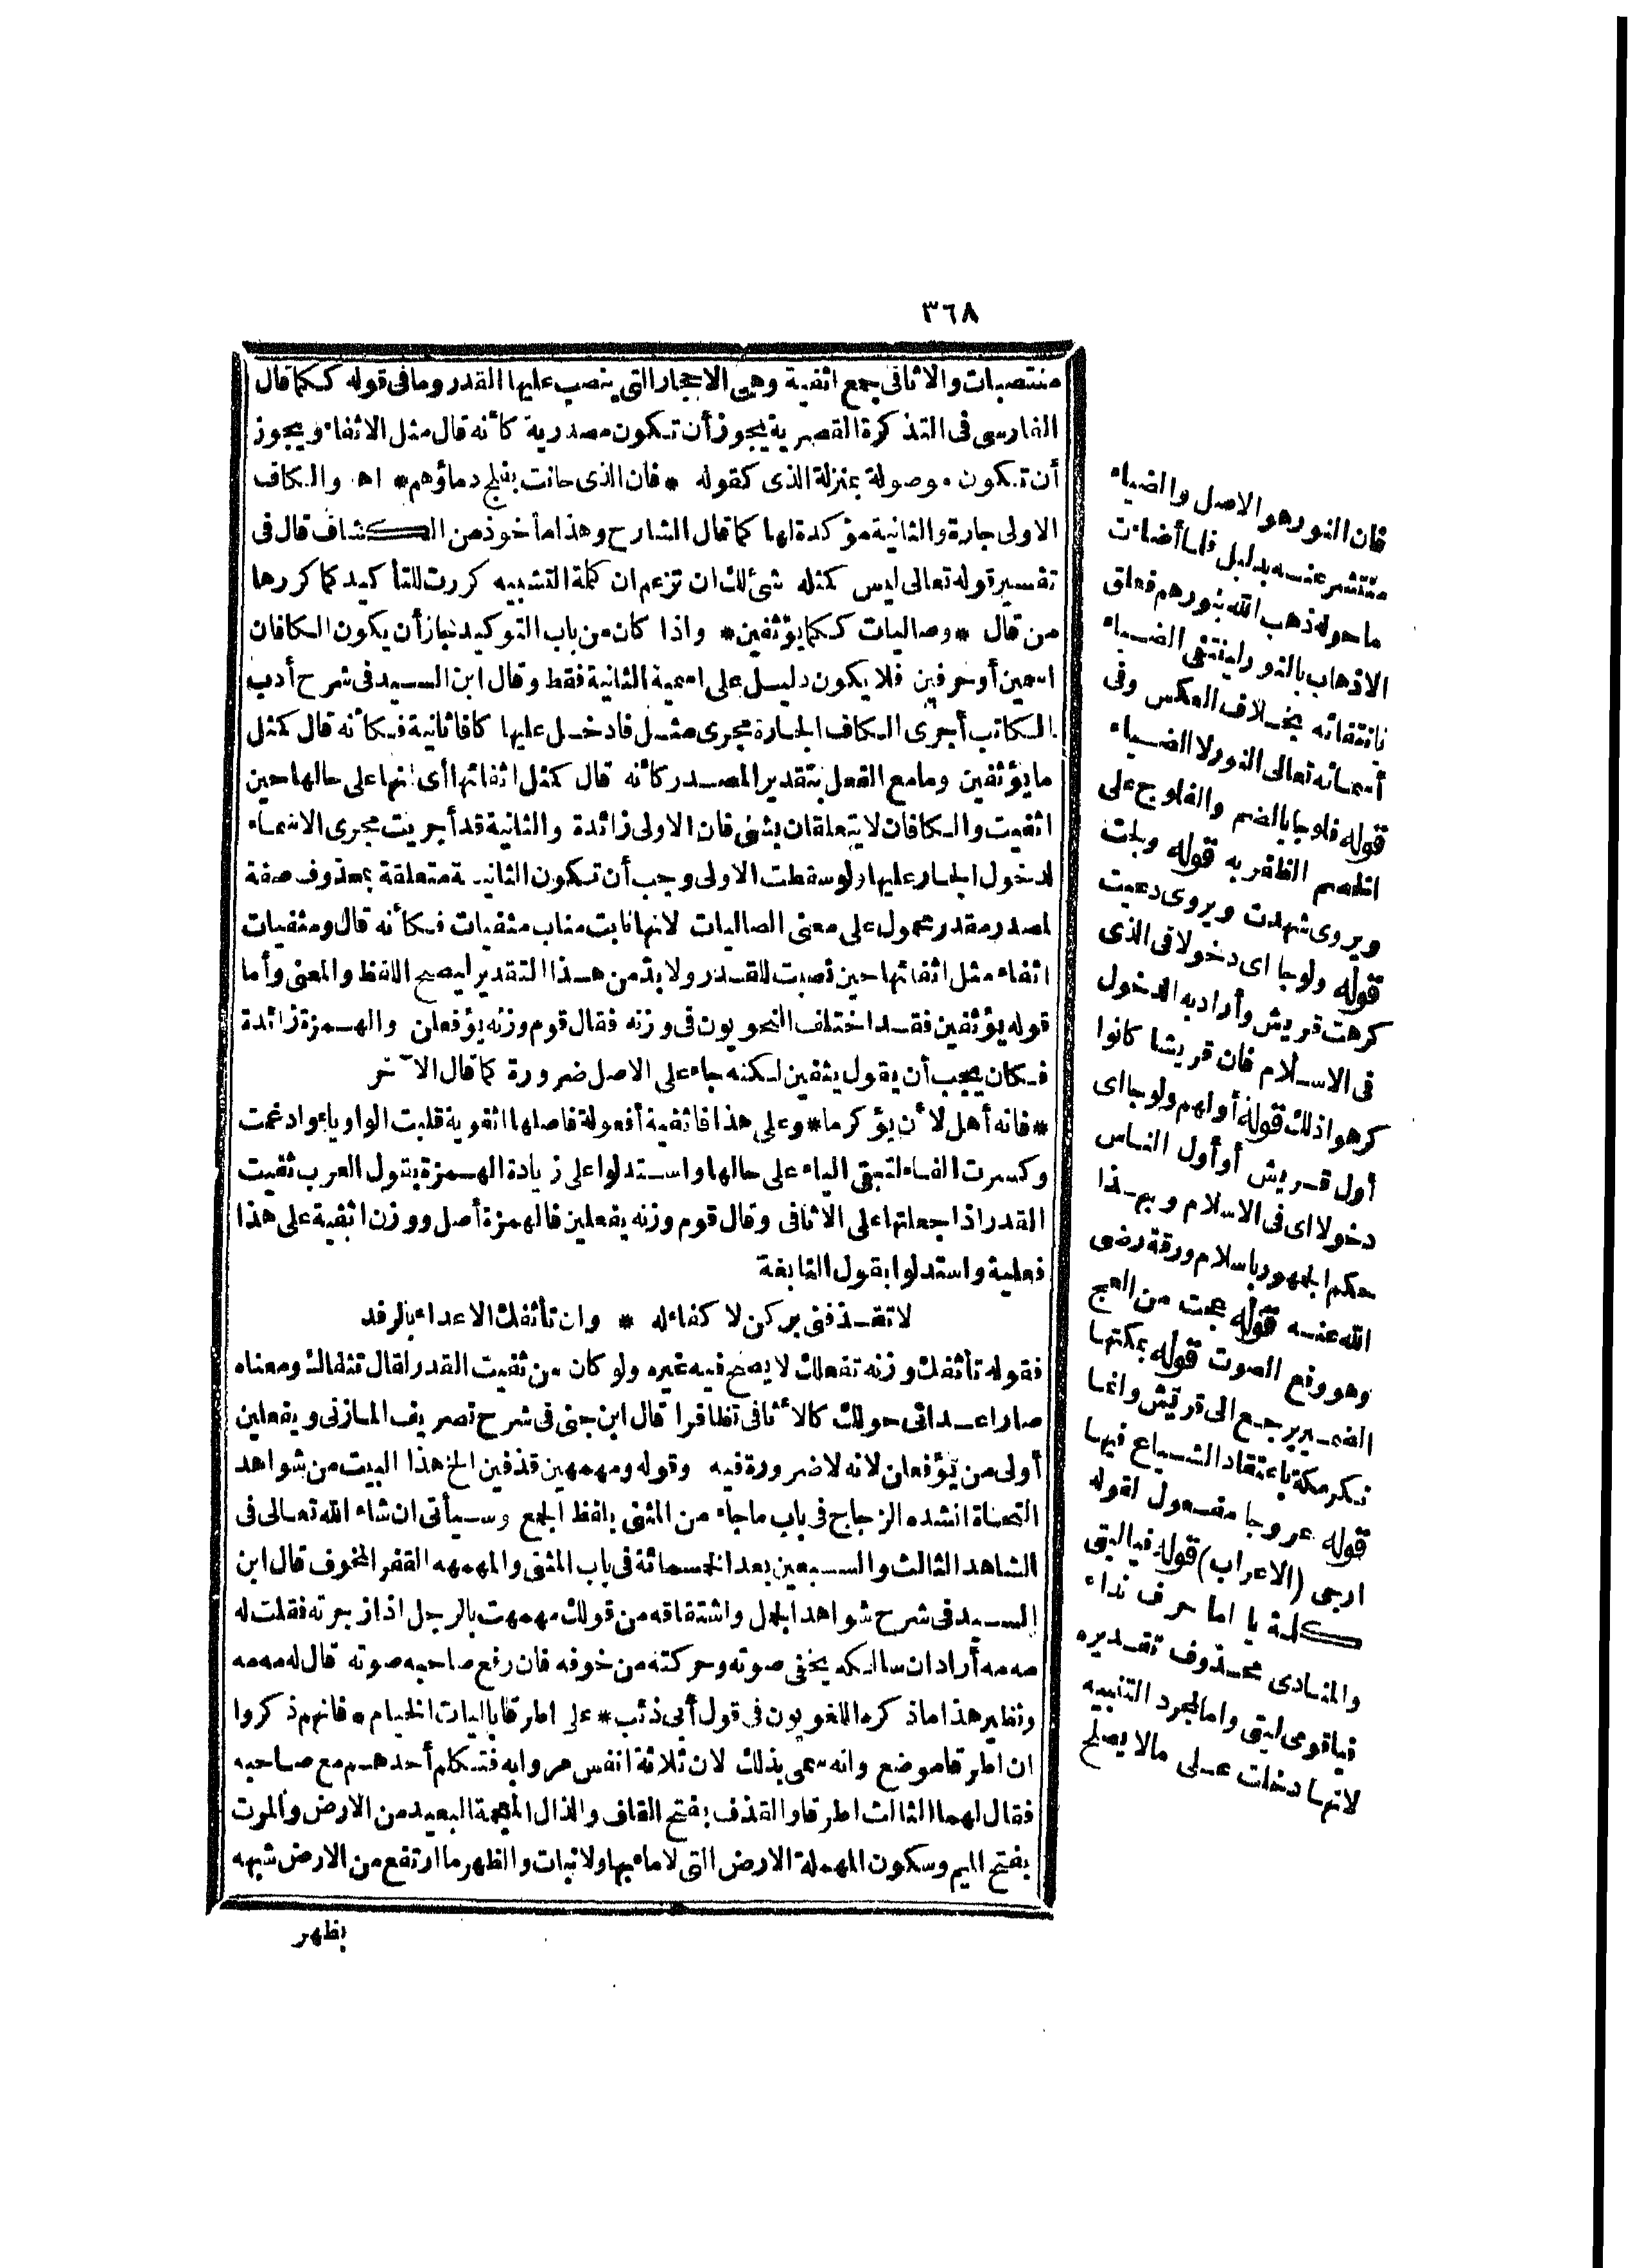 ٣٦٨
منتصبات والاثافى جمع اثفية وهى الاحجار التى ينصب عليها القدر وما فى قوله ككما قال
الفارسى فى التذكرة القصرية يجوز أن تكون مصدرية كأنه قال مثل الاثفاء ويجوز
أن تكون موصولة بمنزلة الذى كقوله * فان الذى حانت بفلج دماؤهم * اه والكاف
الاولى جارة والثانية مؤكدة لها كما قال الشارح وهذا مأخوذ من الكشاف قال فى
تفسير قوله تعالى ليس كمثله شئ لك ان تزعم ان كلمة التشبيه كررت للتأكيد كما كررها
من قال * وصاليات ككما يؤثفين * واذا كان من باب التوكيد فجاز أن يكون الكافان
اسمين أو حرفين فلا يكون دليل على اسمية الثانية فقط وقال ابن السيد فى شرح أدب
الكاتب أجرى الكاف الجارة مجرى مثل فادخل عليها كافا ثانية فكأنه قال كمثل
ما يؤثفين وما مع الفعل بتقدير المصدر كأنه قال كمثل اثفائها أى انها على حالها حين
اثفيت والكافان لا يتعلقان بشئ فان الاولى زائدة والثانية قد أجريت مجرى الاسماء
لدخول الجار عليها ولو سقطت الاولى وجب أن تكون الثانية متعلقة بمحذوف صفة
لمصدر مقدر محمول على معنى الصاليات لانها نابت مناب مثفيات فكأنه قال ومثفيات
اثفاء مثل اثفائها حين نصبت للقدر ولا بد من هذا التقدير ليصح اللفظ والمعنى وأما
قوله يؤثفين فقد اختلف النحويون فى وزنه فقال قوم وزنه يؤفعلن والهمزة زائدة
فكان يجب أن يقول يثفين لكنه جاء على الاصل ضرورة كما قال الآخر
* فانه أهل لأن يؤكرما * وعلى هذا فاثفية أفعولة فاصلها اثفوية قلبت الواو ياء وادغمت
وكسرت الفاء لتبقى الياء على حالها واستدلوا على زيادة الهمزة بقول العرب ثفيت
القدر اذا جعلتها على الاثافى وقال قوم وزنه يفعلين فالهمزة أصل ووزن اثفية على هذا
فعلية واستدلوا بقول النابغة
لا تقذفنى بركن لا كفاء له * وان تأثفك الاعداء بالرفد
فقوله تأثفك وزنه تفعلك لا يصح فيه غيره ولو كان من ثفيت القدر لقال تثفاك ومعناه
صار اعدائى حولك كالأثافى تظافرا قال ابن جنى فى شرح تصريف المازنى ويفعلين
أولى من يؤفعلن لانه لا ضرورة فيه وقوله ومهمهين قذفين الخ هذا البيت من شواهد
النحاة انشده الزجاج فى باب ما جاء من المثنى بلفظ الجمع وسيأتى ان شاء الله تعالى فى
الشاهد الثالث والسبعين بعد الخسمائة فى باب المثنى والمهمه القفر المخوف قال ابن
السيد فى شرح شواهد الجمل واشتقاقه من قولك مهمهت بالرجل اذا زجرته فقلت له
مه مه أراد ان سالكه يخفى صوته وحركته من خوفه فان رفع صاحبه صوته قال له مه مه
ونظير هذا ما ذكره اللغويون فى قول أبى ذئب * على اطرقا باليات الخيام * فانهم ذكروا
ان اطرقا موضع وانه سمى بذلك لان ثلاثة انفس مروا به فتكلم أحدهم مع صاحبه
فقال لهما الثالث اطرقا والقذف بفتح القاف والذال المعجمة البعيد من الارض والمرت
بفتح الميم وسكون المهملة الارض التى لا ماء بها ولا نبات والظهر ما ارتفع من الارض شبهه
بظهر
فان النور هو الاصل والضياء
منتشر عنه بدليل فلما أضاءت
ما حوله ذهب الله بنورهم فعلق
الاذهاب بالنور لينتفى الضياء
بانتفائه بخلاف العكس وفى
أسمائه تعالى النور لا الضياء
قوله فلوجا بالضم والفلوج على
الخصم الظفر به قوله ولجت
ويروى شهدت ويروى دعيت
قوله ولوجا اى دخولا فى الذى
كرهت قريش وأراد به الدخول
فى الاسلام فان قريشا كانوا
كرهوا ذلك قوله أولهم ولوجا اى
أول قريش أو أول الناس
دخولا اى فى الاسلام وبهذا
حكم الجمهور باسلام ورقة رضى
الله عنه قوله عجت من العج
وهو رفع الصوت قوله بمكتها
الضمير يرجع الى قريش وانما
نكر مكة باعتقاد الشياع فيها
قوله عروجا مفعول لقوله
ارجى (الاعراب) قوله فيا ليتى
كلمة يا اما حرف نداء
والمنادى محذوف تقديره
فيا قومى ليتى واما لمجرد التنبيه
لانها دخلت على مالا يصلح